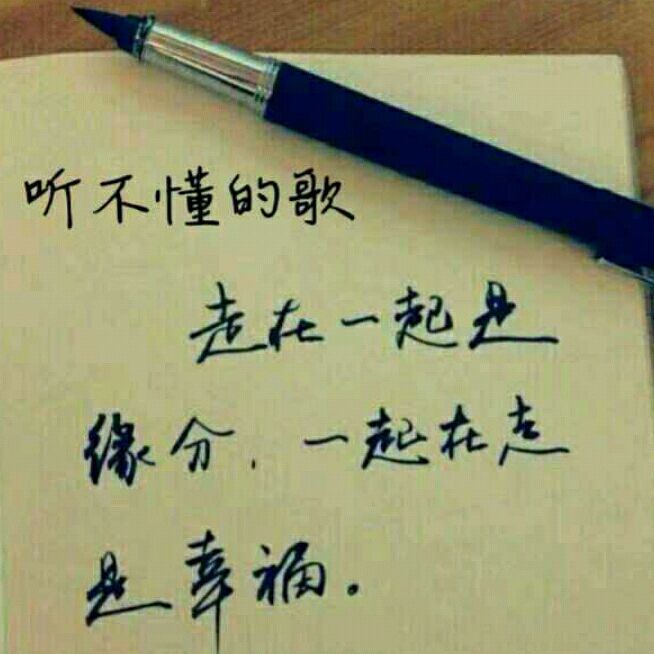 听不懂的歌
走在一起是
缘分，一起在走
是幸福。